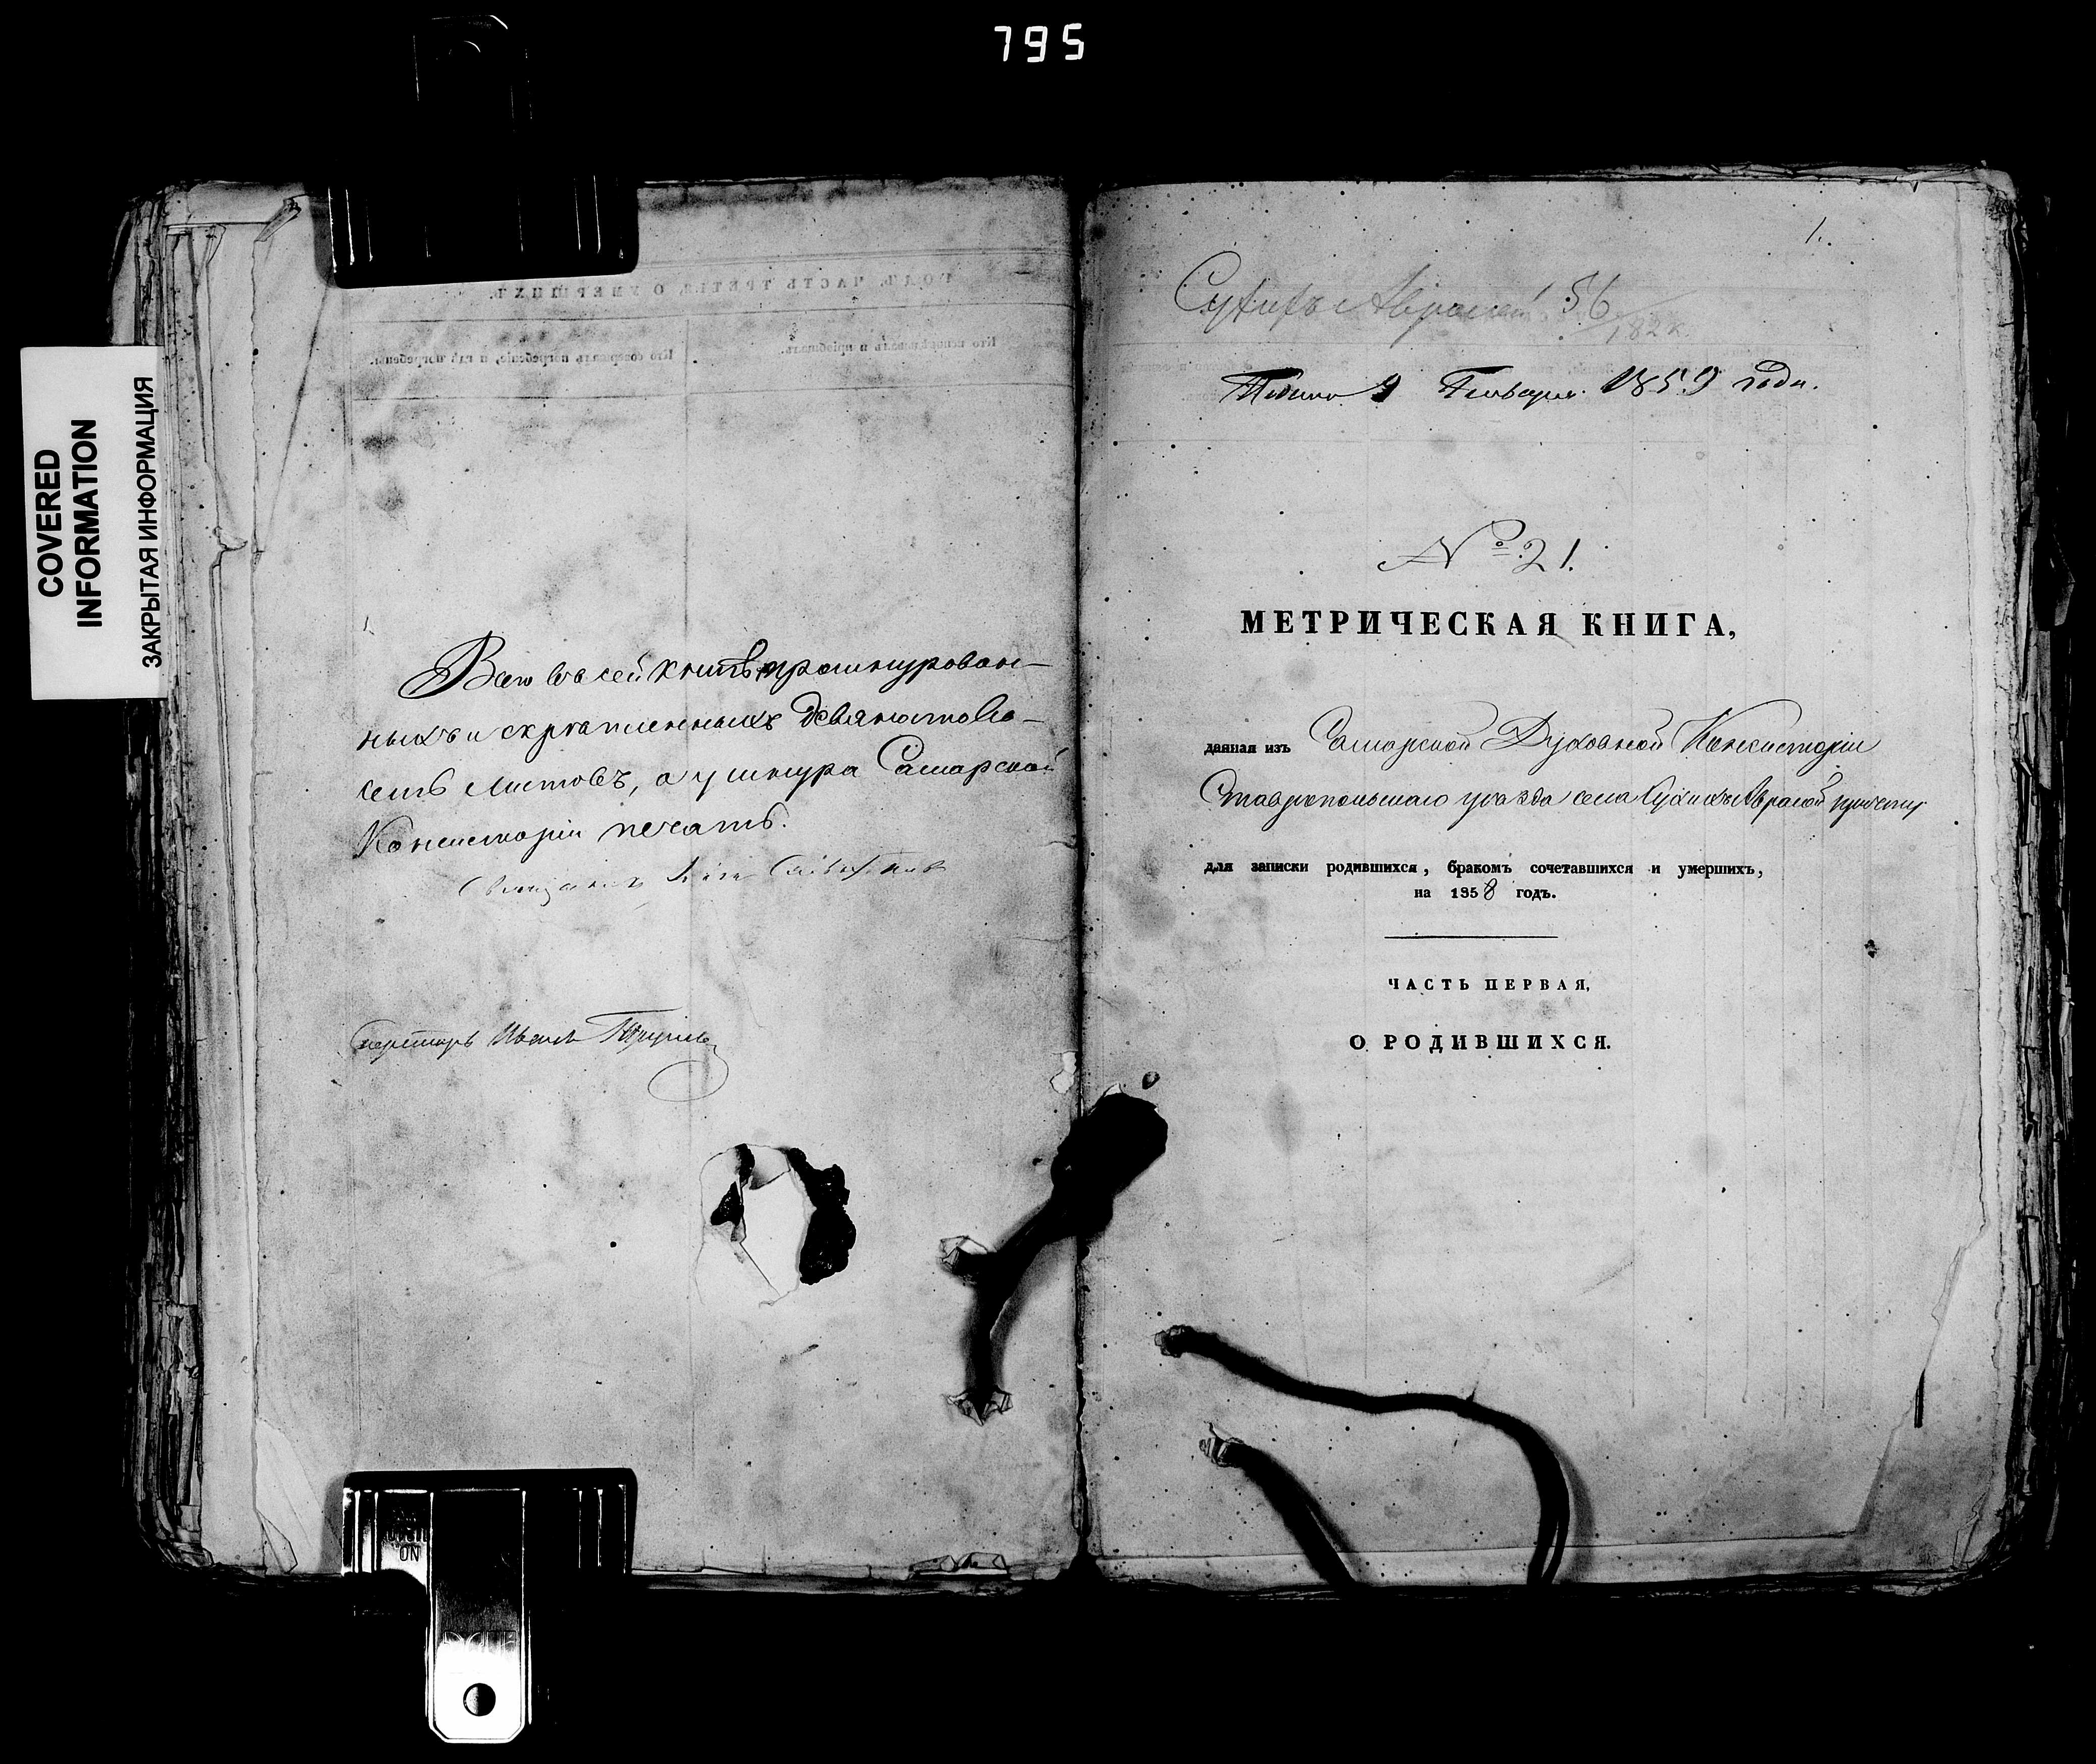 795
COVERED
INFORMATION
ЗАКРЫТАЯ ИНФОРМАЦИЯ
Всего въ сей книгѣ прошнурован-
ныхъ и скрѣпленныхъ девяносто во-
семь листовъ, а у шнура Самарской
Консисторіи печать.
Иванъ
1.
Сухихъ Авралей 56
182 к.
9 Января 1859 года.
№ 21.
МЕТРИЧЕСКАЯ КНИГА,
данная изъ Самарской Духовной Консисторіи
Ставропольскаго уѣзда села Сухихъ Авралей причту
для записки родившихся, бракомъ сочетавшихся и умершихъ,
на 1858 годъ.
ЧАСТЬ ПЕРВАЯ,
О РОДИВШИХСЯ.